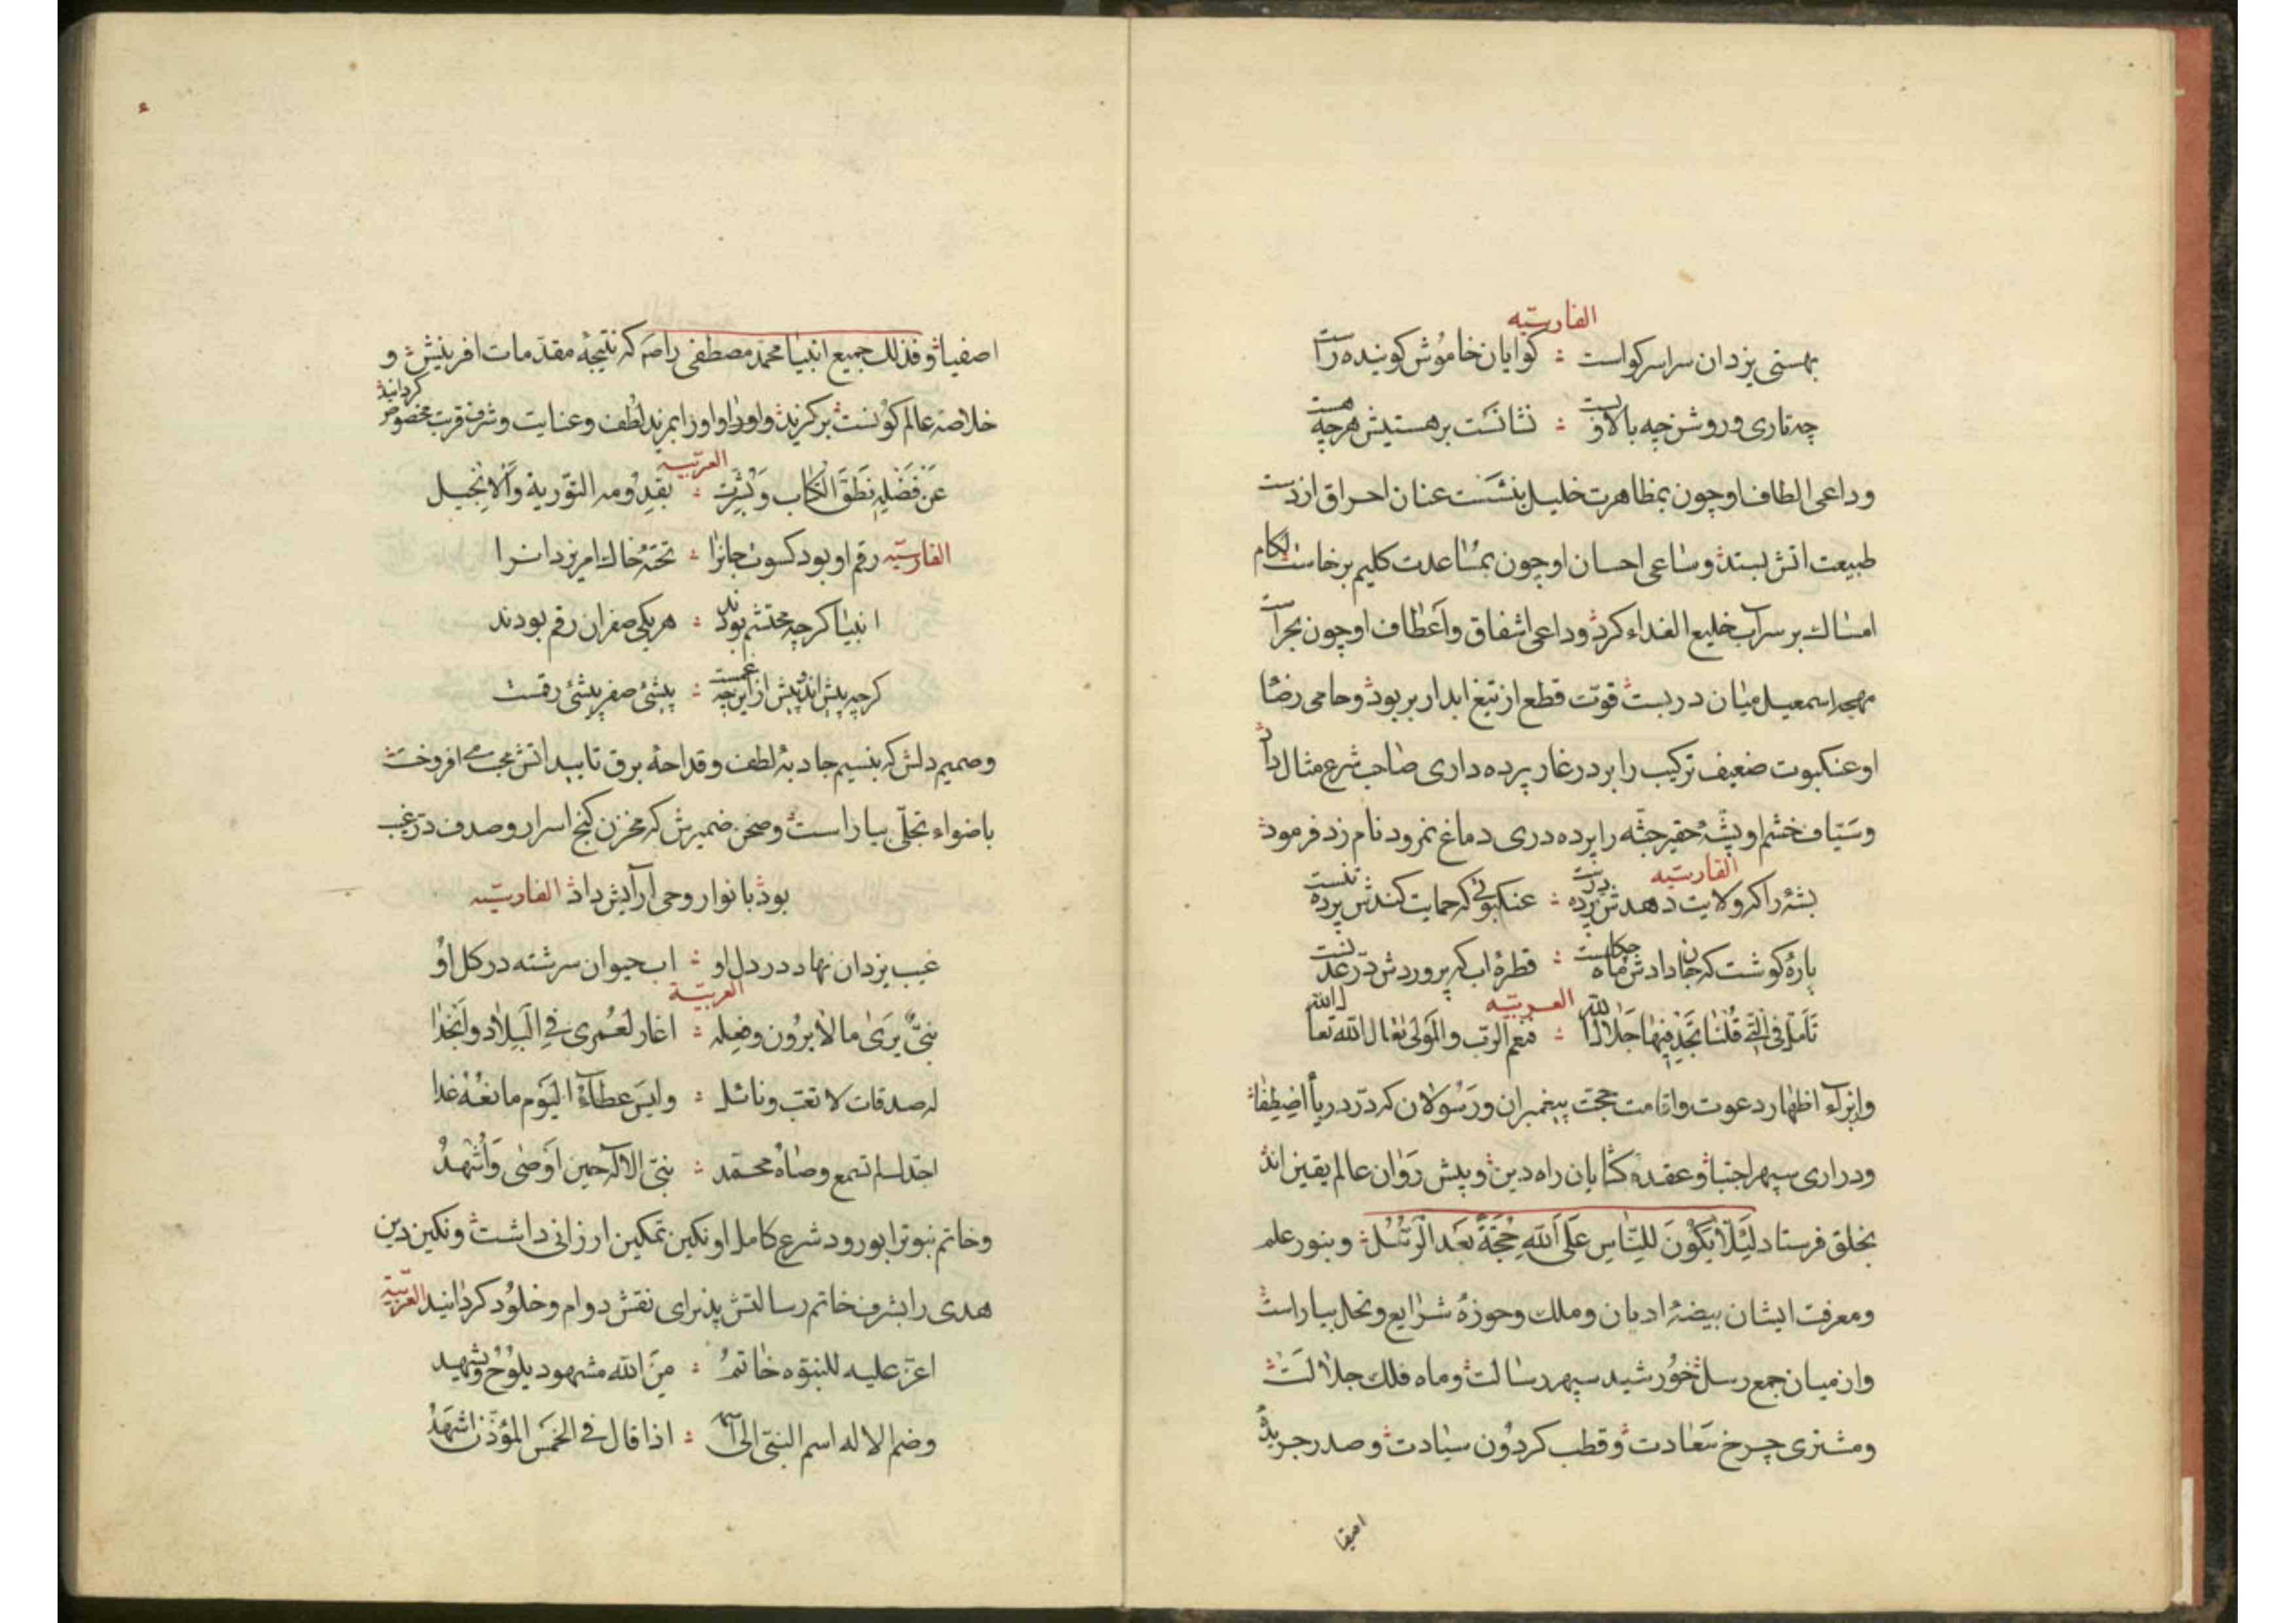 الفارسیّه
بهستی یزدان سراسر کواست ؞ کوایان خاموش کوینده راست
چه تاری و روشن چه بالا و پست ؞ نشانست بر هستیش هرچه هست
وداعی الطاف او چون بمظاهرت خلیل بنشست عنان احراق از دست
طبیعت اتش بستد وساعی احسان او چون بمساعدت کلیم برخاست لکام
امساك بر سر آب خلیع العذاء کرد وداعی اشفاق واعطاف او چون بحراست
مهجه اسمعیل میان در بست قوّت قطع از تیغ ابدار بربود وحامی رضا
او عنکبوت ضعیف ترکیب را بر در غار پرده داری صاحب شرع مثال داد
وسیّاف خشم او پشهٔ حقیر جثّه را پرده دری دماغ نمرود نام زد فرمود
الفارسیّه
پشهٔ را کر ولایت دهدش پرده درست ؞ عنکبوتی که حمایت کندش پرده تنست
پارهٔ کوشت که جان دادش ماه ؞ قطرهٔ اب که پروردش درّ عدنست
العربیّه
تأمّل فی الّتی قلنا تجد فیها جلالا لله ؞ فنعم الربّ والمولی تعالی الله تعالی الله
وابراء اظهار دعوت واقامت حجّت پیغمبران ورسولان که درّ دریاء اصطفا
ودراری سپهر اجتبا وعقده کشایان راه دین وپیش روان عالم یقین اند
بخلق فرستاد لئلّا یکون للنّاس علی الله حجّة بعد الرّسل وبنور علم
ومعرفت ایشان بیضهٔ ادیان وملك وحوزهٔ شرایع ونحل بیاراست
وازمیان جمع رسل خورشید سپهر رسالت وماه فلك جلالت
ومشتری چرخ سعادت وقطب کردون سیادت وصدر جریدهٔ
اصفیا
اصفیا وفذلك جمیع انبیا محمّد مصطفی را صم که نتیجهٔ مقدّمات افرینش و
خلاصهٔ عالم کونست برکزید واورا بمزید لطف وعنایت وشرف قربت مخصوص کردانید
العربیّه
عن فضله نطق الکتاب وبشّرت ؞ بقدومه التّوریة والانجیل
الفارسیّه رقم او بود کسوت جانرا ؞ تختهٔ خاك امر یزدانرا
انبیا کرچه محتشم بودند ؞ هریکی صفر ان رقم بودند
کرچه پیش اند وپیش از این چه غمست ؞ پیشئ صفر پیشئ رقمست
وصمیم دلش که بنسیم جاذبهٔ لطف وقداحهٔ برق تایید اتش محبت می افروخت
باضواء تجلّی بیاراست وصحن ضمیرش که مخزن کنج اسرار وصدف درّ غیب
بود بانوار وحی آرایش داد الفارسیّه
غیب یزدان نهاد در دل او ؞ اب حیوان سرشته در کل او
العربیّة
نبیّ یری ما لا یرون وفعله ؞ اغار لعمری فی البلاد وانجدا
له صدقات لا تغبّ ونائل ؞ ولیس عطاء الیوم مانعه غدا
اجدّك لم تسمع وصاة محمّد ؞ نبیّ الاله حین اوصی واشهد
وخاتم نبوّترا بورود شرع کامل او نکین تمکین ارزانی داشت ونکین دین
هدی را بشرف خاتم رسالتش پذیرای نقش دوام وخلود کردانید العربیّة
اعزّ علیه للنبوّه خاتم ؞ من الله مشهود یلوح ویشهد
وضم الاله اسم النبیّ الی اسمه ؞ اذا قال فی الخمس المؤذّن اشهد